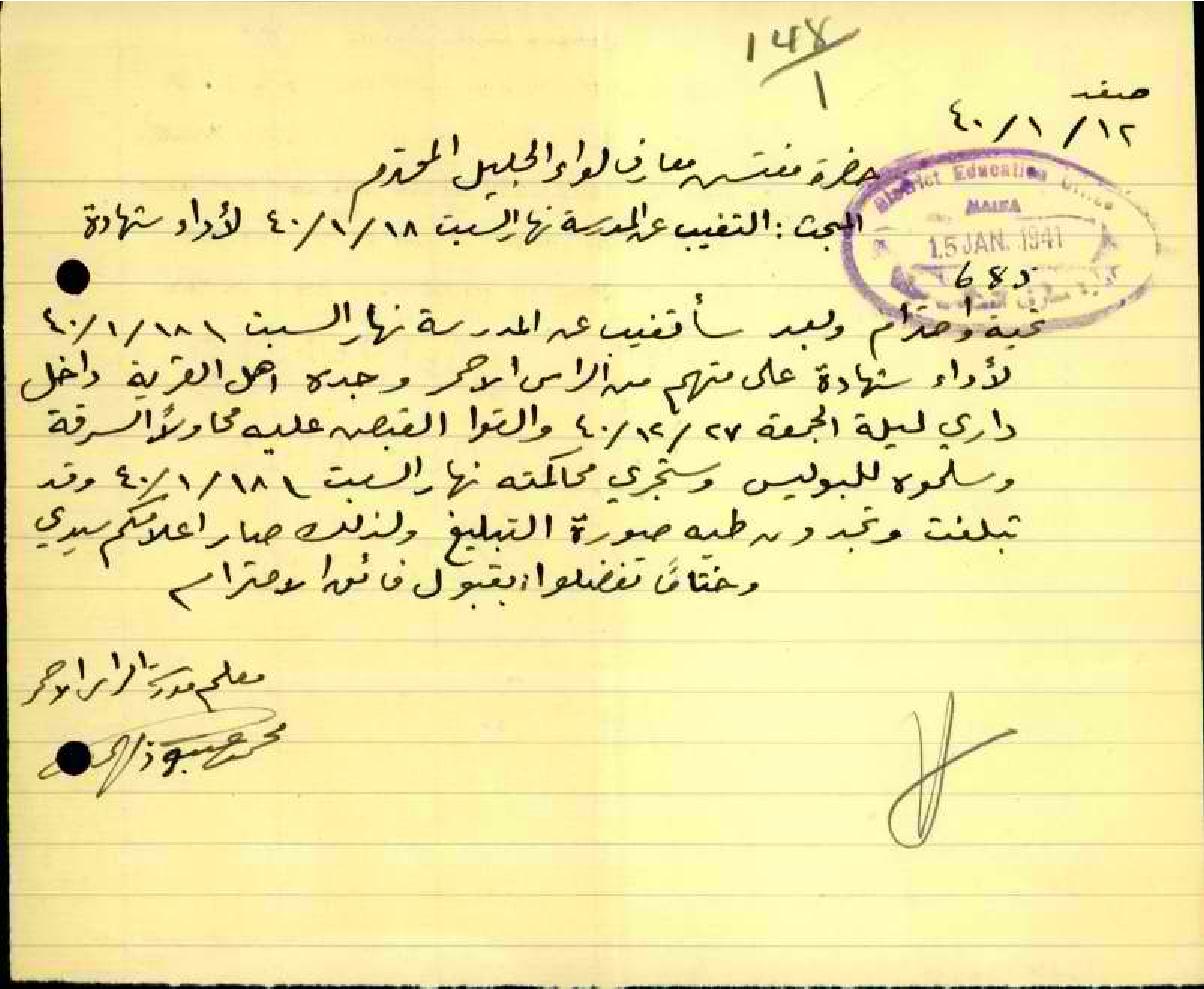 148/1
صفد
١٢/١/٤٠
حضرة مفتش معارف لواء الجليل المحترم
District Education Office
HAIFA
15 JAN. 1941
685
المبحث : التغيب عن المدرسة نهار السبت ١٨/١/٤٠ لأداء شهادة
تحية واحترام وبعد سأتغيب عن المدرسة نهار السبت ١٨/١/٤٠
لأداء شهادة على متهم من الراس الاحمر وجده اهل القرية داخل
داري ليلة الجمعة ٢٧/١٢/٤٠ والقوا القبض عليه محاولاً السرقة
وسلموه للبوليس وستجري محاكمته نهار السبت ١٨/١/٤٠ وقد
تبلغت وتجدون طيه صورة التبليغ ولذلك صار اعلامكم سيدي
وختاماً تفضلوا بقبول فائق الاحترام
معلم مدرسة الراس الاحمر
محمد